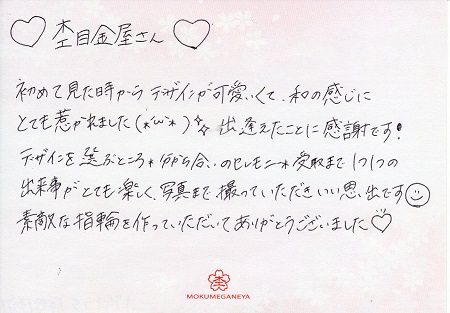 ♡ 杢目金屋さん ♡
初めて見た時からデザインが可愛いくて、和の感じに
とても惹かれました(*'ω'*)☆ 出逢えたことに感謝です!
デザインを選ぶところ*分かち合いのセレモニー*受取まで1つ1つの
出来事がとても楽しく、写真まで撮っていただきいい思い出です☺
素敵な指輪を作っていただいてありがとうございました♡
杢
MOKUMEGANEYA